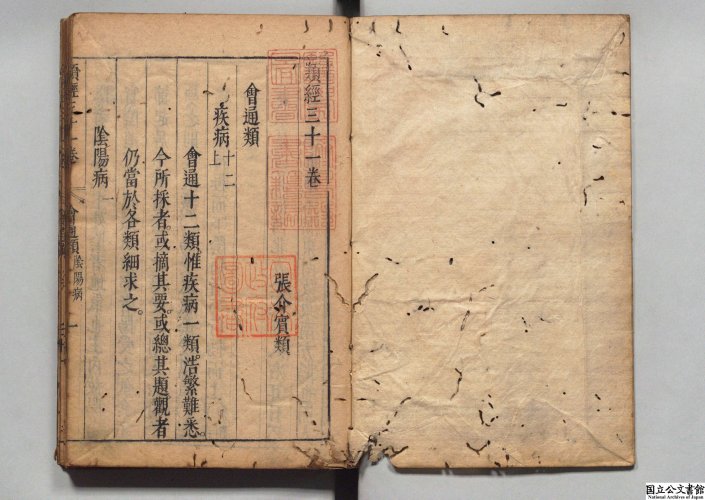 類經三十一卷
張介賓類
會通類
疾病十二上
會通十二類惟疾病一類浩繁難悉
今所採者或摘其要或總其題觀者
仍當於各類細求之
陰陽病一
類經三十一卷 會通類 陰陽病 一
国立公文書館
National Archives of Japan